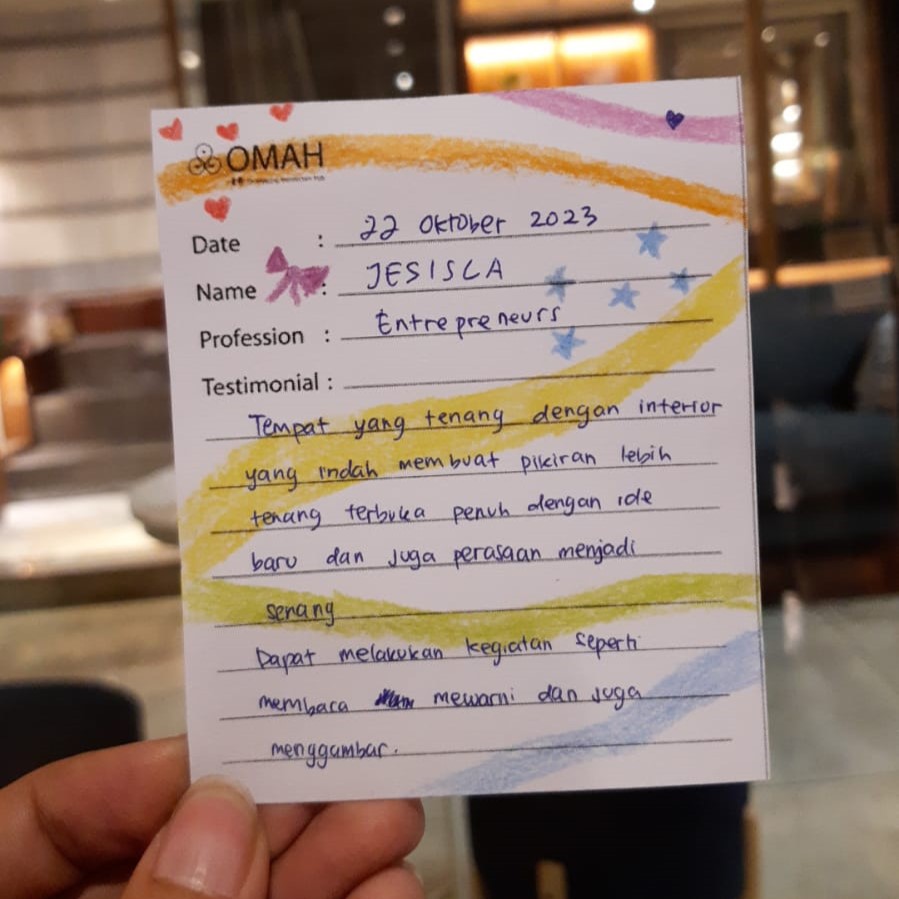 OMAH
Date : 22 Oktober 2023
Name : JESISCA
Profession : Entrepreneurs
Testimonial :
Tempat yang tenang dengan interior
yang indah membuat pikiran lebih
tenang terbuka penuh dengan ide
baru dan juga perasaan menjadi
senang
Dapat melakukan kegiatan seperti
membaca mewarni dan juga
menggambar.